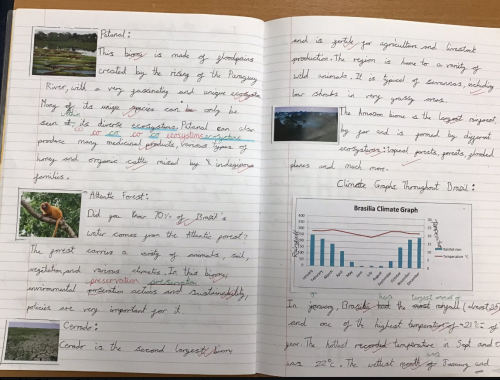 Patanal:
This biome is made of floodplains
created by the rising of the Paraguay
River, with a very grassnaty and unique ecosystem
Many of its unique species can be only be
seen at its diverse ecosystems. Patanal can also
co co co co ecosystems ecosystems
produce many medicinal products, various types of
honey and organic cattle raised by indegionus
families.
Atlantic Forest:
Did you know 70% of Brazil's
water comes from the Atlantic forest?
The forest carries a variety of animals, soil,
vegetation, and various climates. In this biome,
preservation
environmental actions and sustainability,
policies are very important for it
Cerrado:
Cerrado is the second largest biome
and is fertile for agriculture and livestock
production. The region is home to a variety of
wild animals. It is typical of savannas, including
low shrubs in very grassy areas.
The Amazon biome is the largest rainforest,
by far and is formed by different
ecosystems: tropical forests, forests, flooded
plains and much more.
Climate Graphs Throughout Brazil:
Brasilia Climate Graph
400
350
300
250
200
150
100
50
0
Rainfall mm
temperature °C
January
February
March
April
May
June
July
August
September
October
November
December
has largest amount of
In January, Brasilia had the most rainfall (almost 25
and one of the highest temperature of 21°C of
year. The hottest recorded temperature in Sept and O
was 22°C. The wettest month of January and